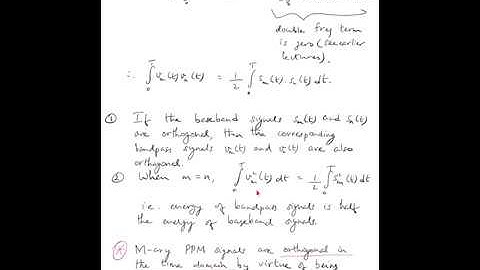 double freq term
is zero (see earlier
lectures).
∴ ∫₀ᵀ vₘ(t) vₙ(t) = 1/2 ∫₀ᵀ sₘ(t). sₙ(t) dt.
① If the baseband signals sₘ(t) and sₙ(t)
are orthogonal, then the corresponding
bandpass signals vₘ(t) and vₙ(t) are also
orthogonal.
② When m=n, ∫₀ᵀ vₘ²(t) dt = 1/2 ∫₀ᵀ sₘ²(t) dt
i.e. energy of bandpass signals is half
the energy of baseband signals.
M-ary PPM signals are orthogonal in
the time domain by virtue of being